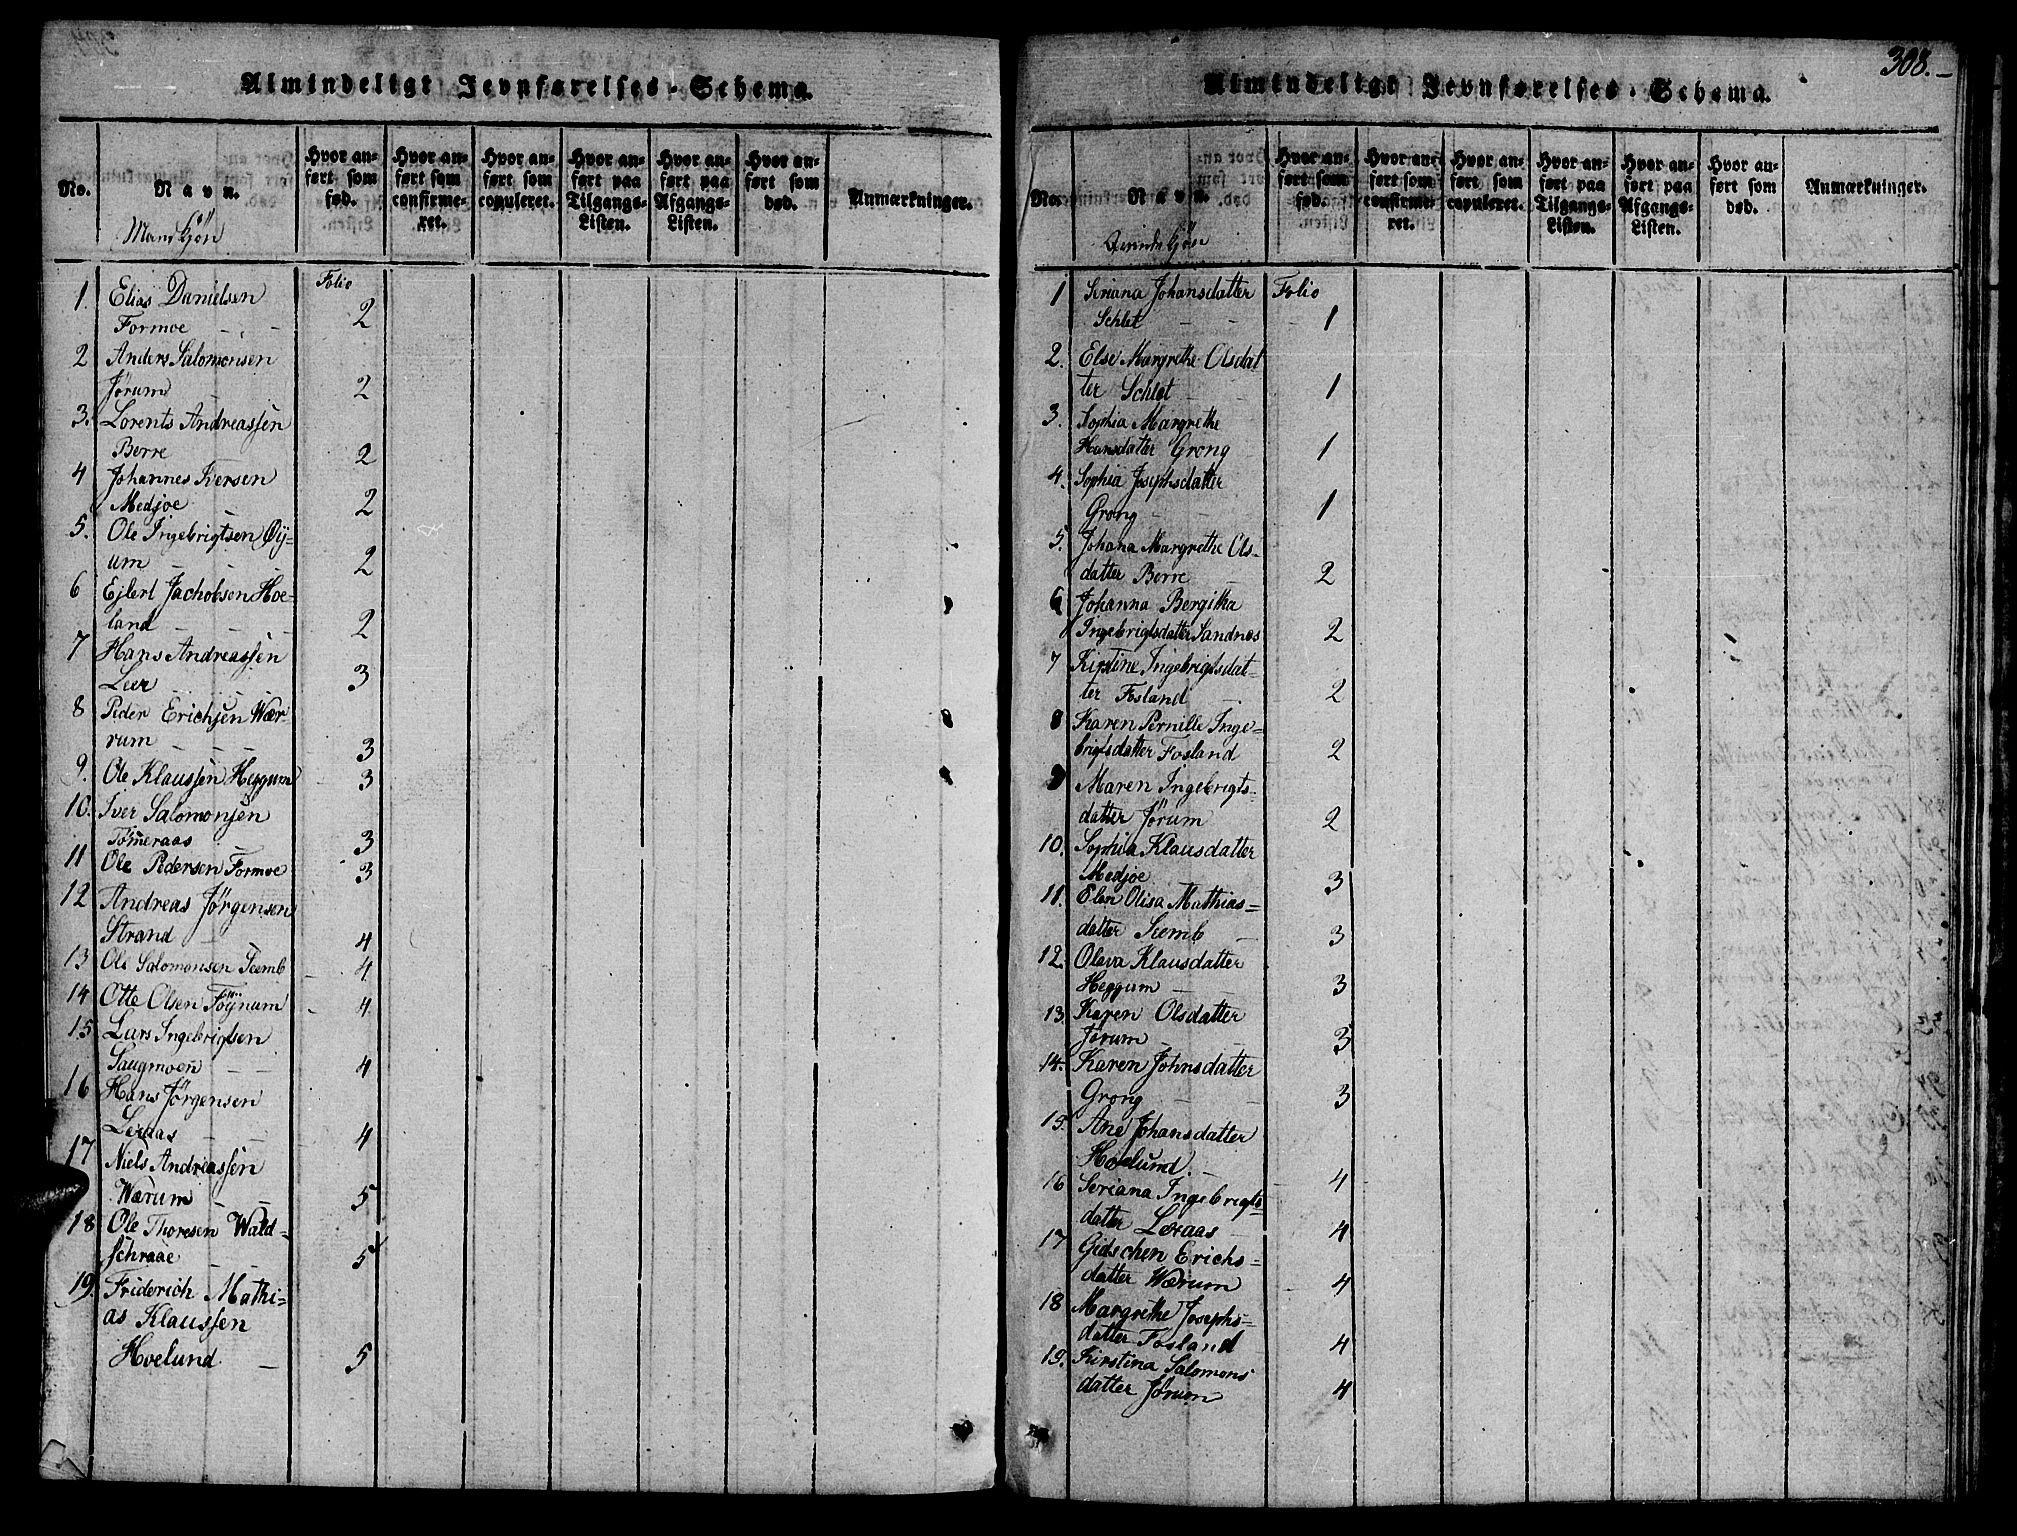 Almindeligt Jevnførelses-Schema.
No.
Navn.
Hvor anført som fød.
Hvor anført som confirmeret.
Hvor anført som copuleret.
Hvor anført paa Tilgangs-Listen.
Hvor anført paa Afgangs-Listen.
Hvor anført som død.
Anmærkninger.
Mandkjøn
Folio
1. Elias Danielsen
Formoe 2
2 Anders Salomonsen
Jørum 2
3. Lorents Andreassen
Berre 2
4 Johannes Iversen
Medjoe 2
5. Ole Ingebrigtsen Øÿ=
um 2
6 Ejlert Jachobsen Hoe=
land 2
7 Hans Andreassen
Leer 3
8 Peder Erichsen Wær
rum 3
9. Ole Klaussen Heggum 3
10. Iver Salomonsen
Tømeraas 3
11 Ole Pedersen Formoe 3
12 Andreas Jørgensen
Strand 4
13 Ole Salomonsen Seemb 4
14 Otte Olsen Föÿnum 4
15. Lars Ingebrigtsen
Saugmoen 4
16 Hans Jørgensen
Leraas 4
17 Niels Andreassen
Wærum 5
18 Ole Thoresen Wald=
schraae 5
19. Friderich Mathi=
as Klaussen
Hoelund 5
308.
Almindeligt Jevnførelses-Schema.
No.
Navn.
Hvor anført som fød.
Hvor anført som confirmeret.
Hvor anført som copuleret.
Hvor anført paa Tilgangs-Listen.
Hvor anført paa Afgangs-Listen.
Hvor anført som død.
Anmærkninger.
Qvindekjøn
Folio
1 Seriana Johansdatter
Schlet 1
2. Else Margrethe Olsdat
ter Schlet 1
3. Sophia Margrethe
Hansdatter Grong 1
4. Sophia Josephsdatter
Grong 1
5. Johana Margrethe Ols=
datter Berre 2
6 Johanna Bergitha
Ingebrigtsdatter Sandnes 2
7 Kirstine Ingebrigtsdat=
ter Fosland 2
8 Karen Pernille Inge=
brigtsdatter Fosland 2
9 Maren Ingebrigts=
datter Jørum 2
10. Sophia Klausdatter
Medjoe 3
11. Elen Olisa Mathias=
datter Seemb 3
12. Olava Klausdatter
Heggum 3
13. Karen Olsdatter
Jørum 3
14. Karen Johnsdatter
Grong 3
15. Ane Johansdatter
Hoelund 4
16 Seriana Ingebrigts=
datter Leraas 4
17 Gidschen Erichs=
datter Wærum 4
18 Margrethe Josephs=
datter Fosland 4
19. Kirstina Salomons
datter Jørum 4